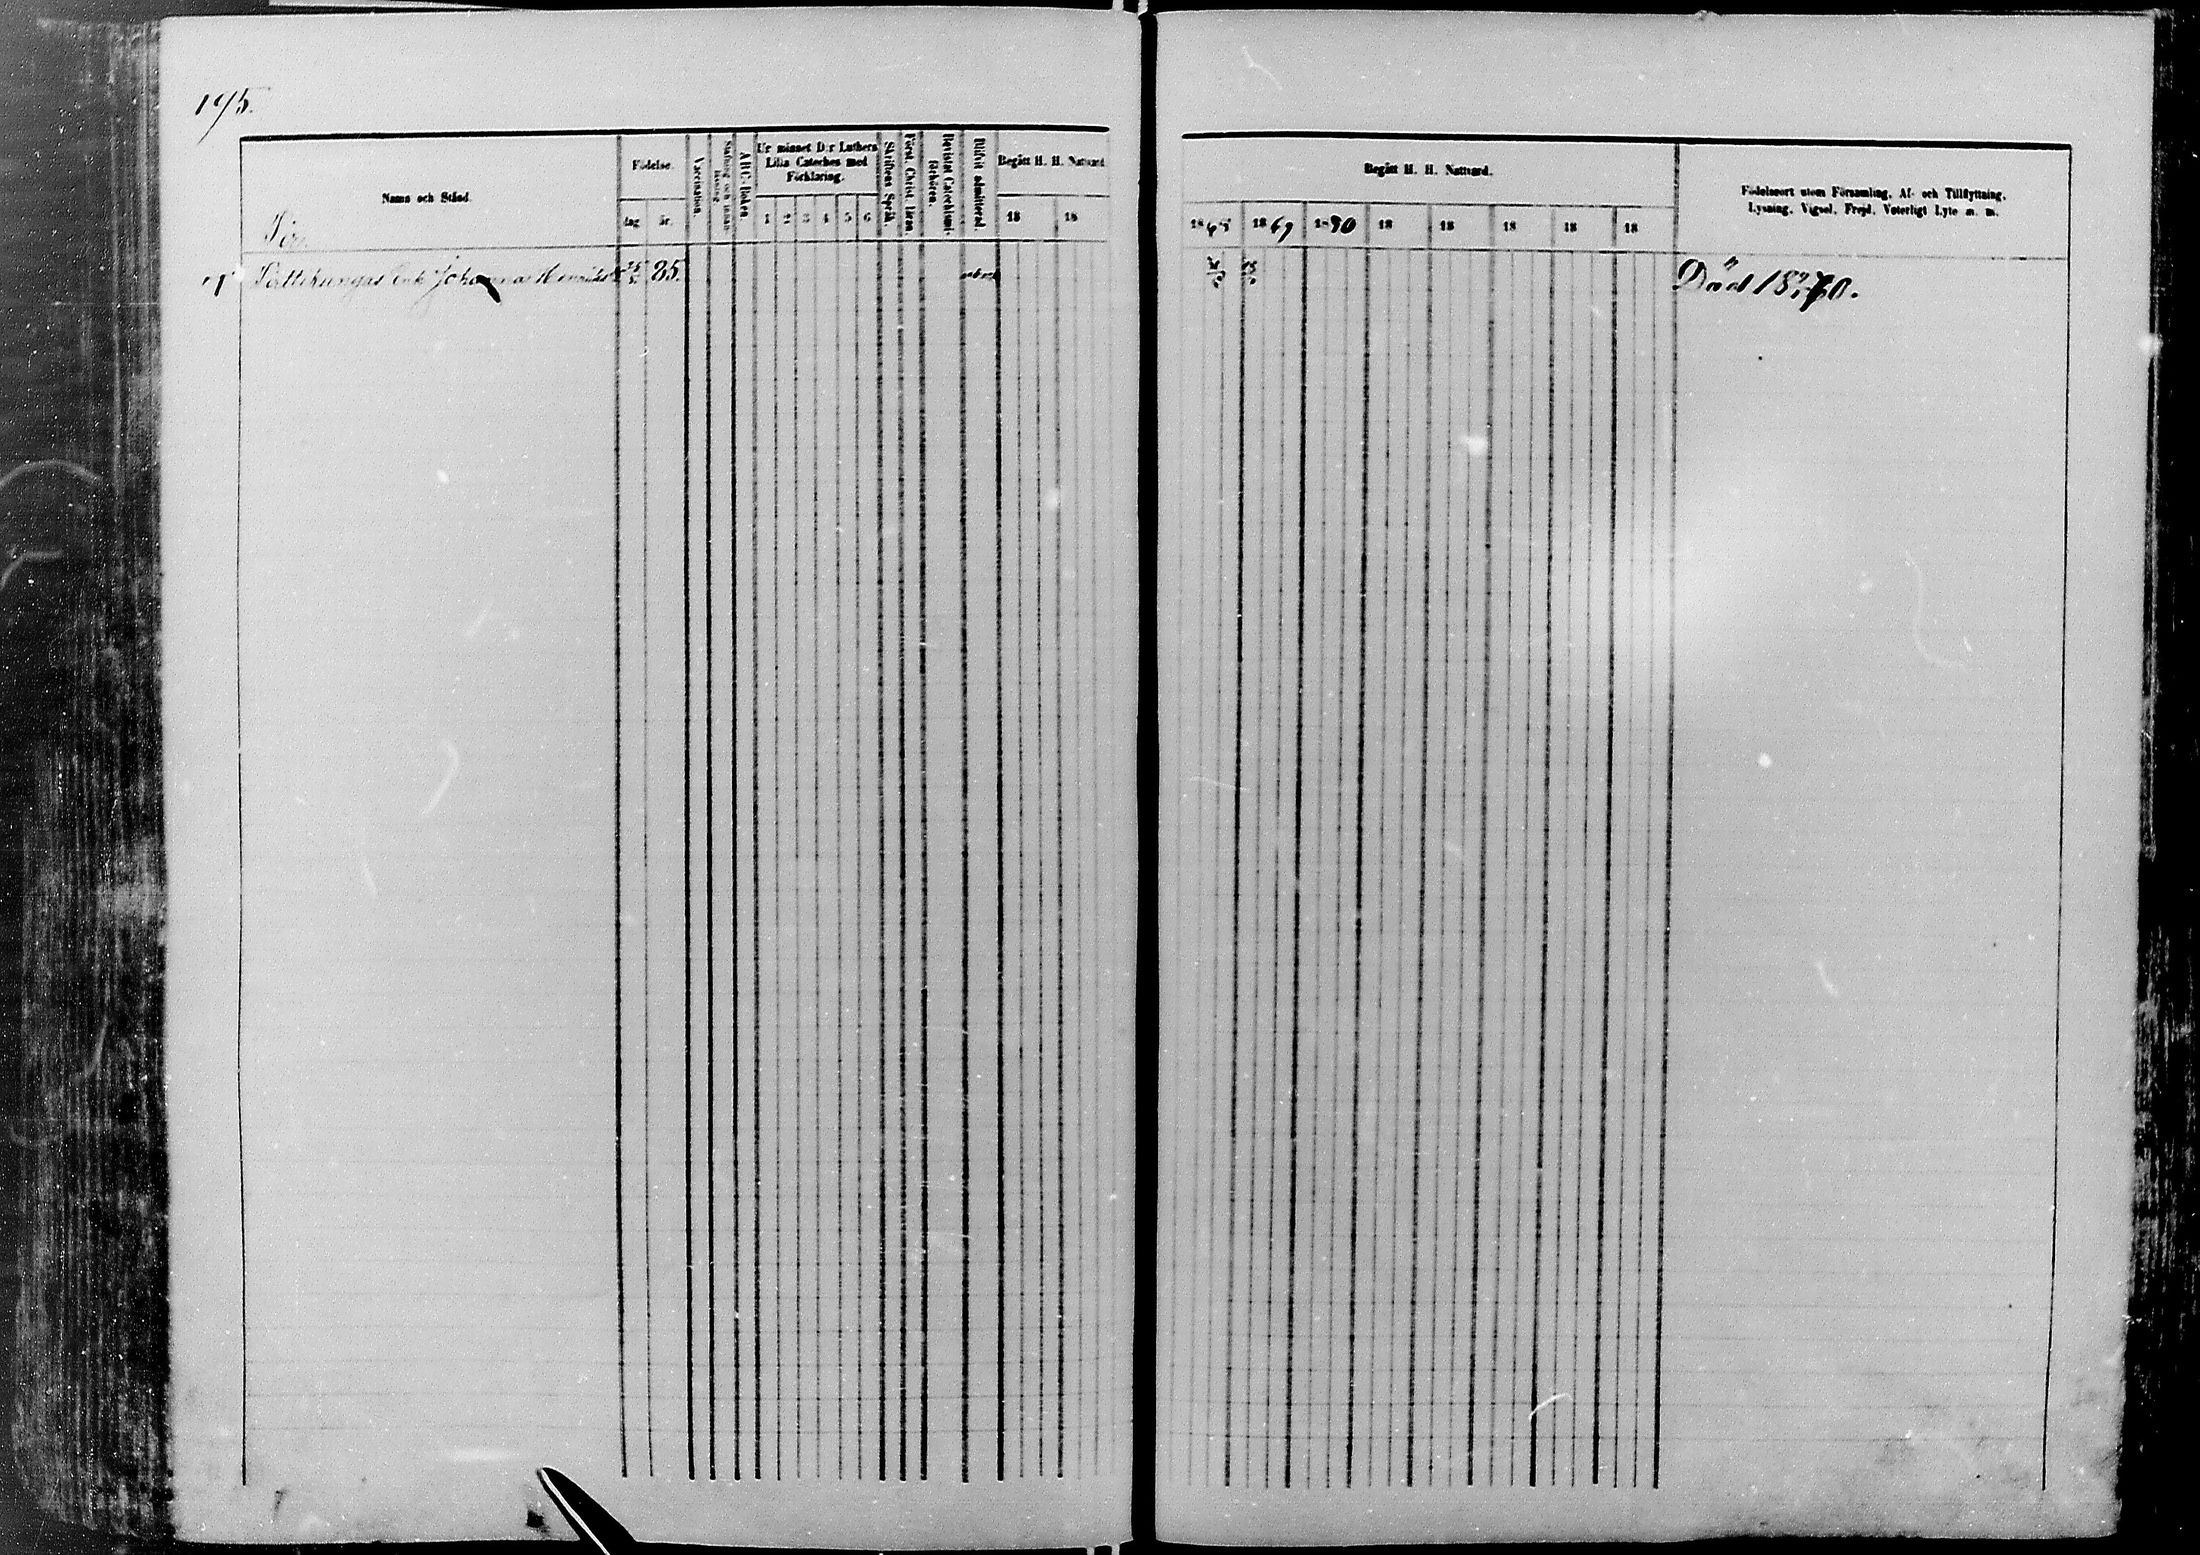 195.
Namn och Stånd.
Födelse.
dag
år.
Vaccination.
Stafning och innan-läsning.
ABC-Boken.
Ur minnet D:r Luthers
Lilla Cateches med
Förklaring.
1 2 3 4 5 6
Skriftens Språk.
Först. Christ. läran.
Bevistat Catechismi-förhören.
Blifvit admitterad.
Begått H. H. Nattvard.
18 18
Enk. Johanna 85.
Begått H. H. Nattvard.
18 1869 18 18 18 18 18 18
Födelseort utom Församling, Af- och Tillflyttning,
Lysning, Vigsel, Frejd, Veterligt Lyte m. m.
Död 18 70.